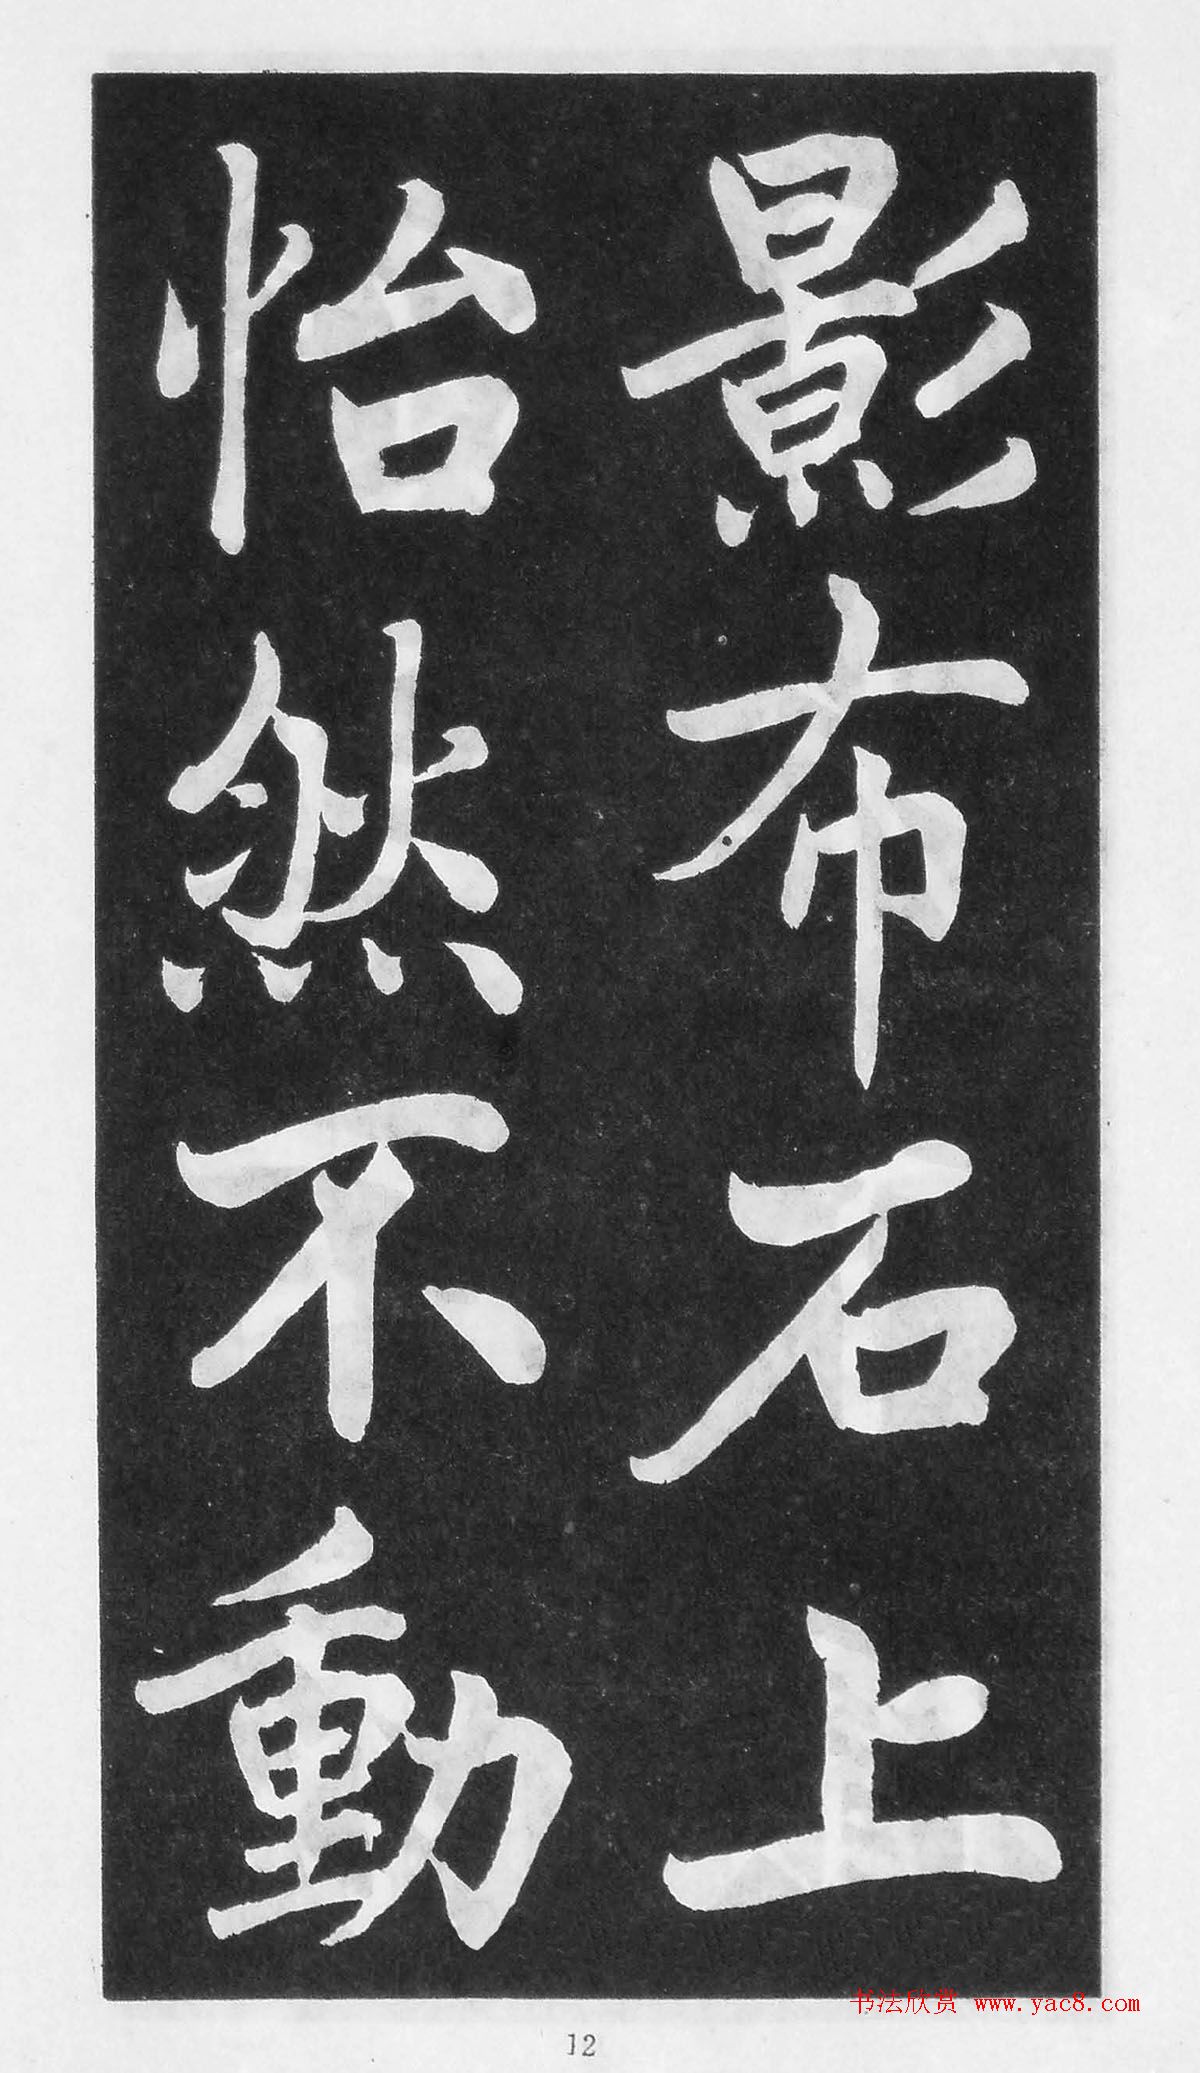 影布石上
怡然不動
书法欣赏 www.yac8.com
12